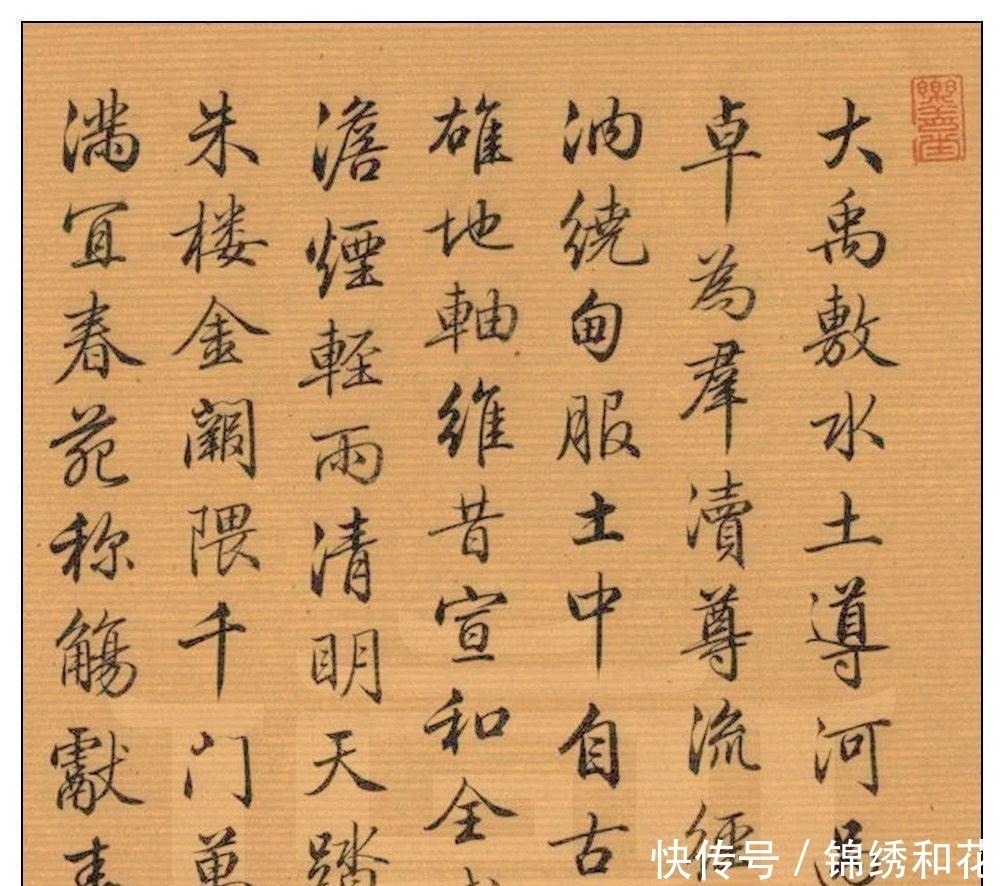 大禹敷水土導河
卓為羣瀆尊流經
汭繞甸服土中自古
雄地軸維昔宣和全
澹煙輕雨清明天踏
朱楼金闕隈千门萬
满宜春苑称觴獻壽
快传号 / 锦绣和花